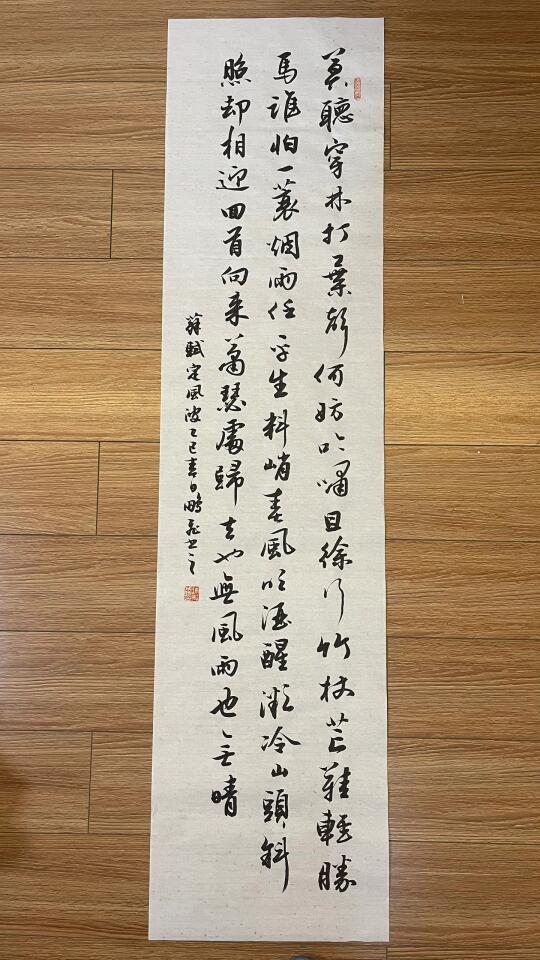 莫聽穿林打葉聲何妨吟嘯且徐行竹杖芒鞋輕勝
馬誰怕一蓑烟雨任平生料峭春風吹酒醒微冷山頭斜
照却相迎回首向来蕭瑟處歸去也無風雨也無晴
蘇軾定風波乙巳春日鵬飛书之